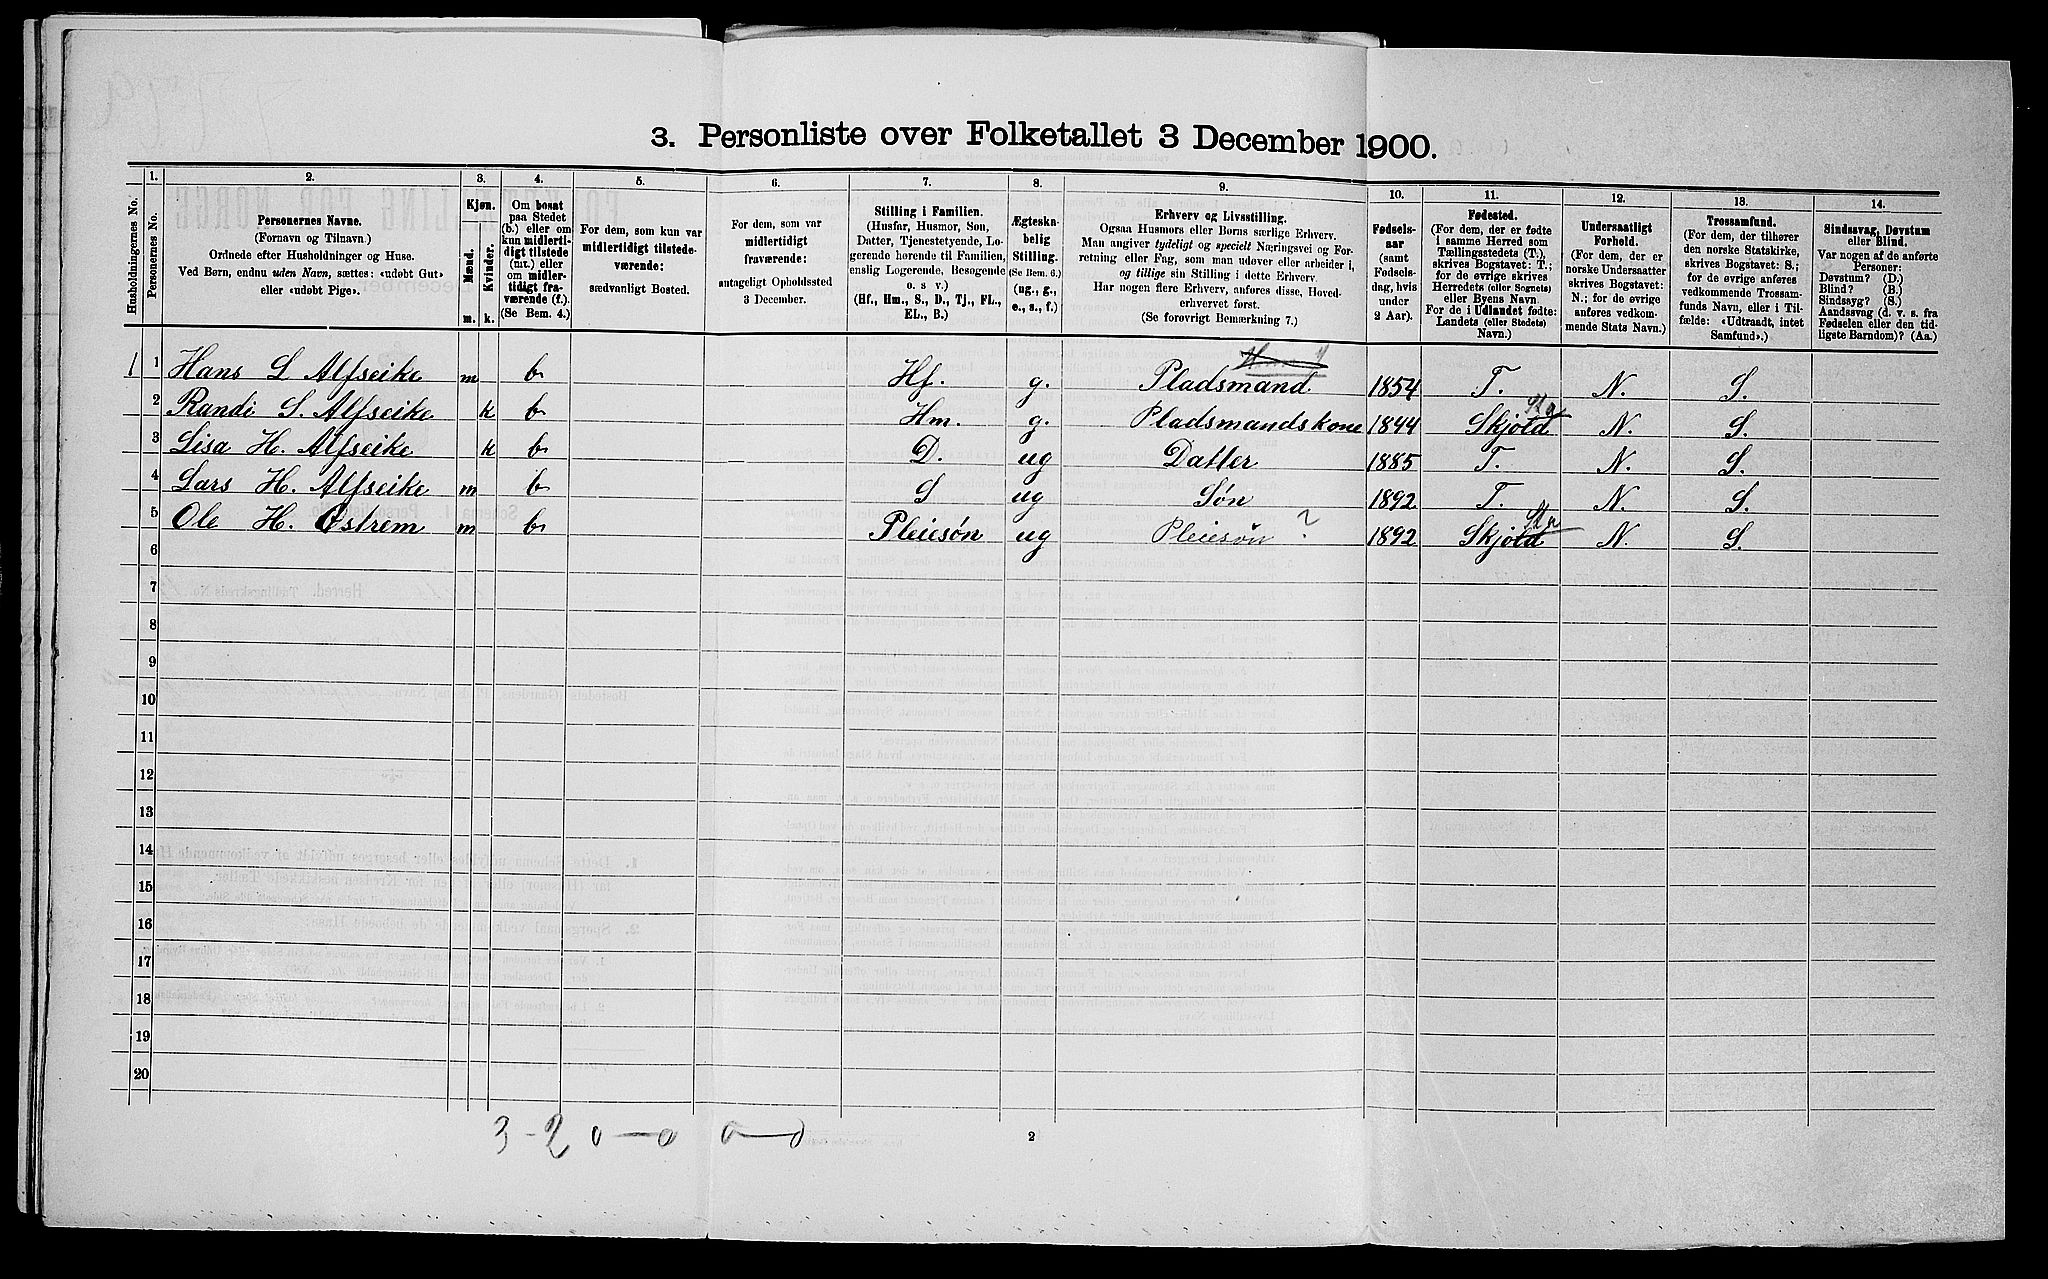 3. Personliste over Folketallet 3 December 1900.
1. 2. 3. 4. 5. 6. 7. 8. 9. 10. 11. 12. 13. 14.
Husholdningernes No.
Personernes No.
Personernes Navne.
(Fornavn og Tilnavn.)
Ordnede efter Husholdninger og Huse.
Ved Børn, endnu uden Navn, sættes: «udøbt Gut»
eller «udøbt Pige».
Kjøn.
Mænd.
Kvinder.
m. k.
Om bosat
paa Stedet
(b.) eller om
kun midlerti-
digt tilstede
(mt.) eller
om midler-
tidigt fra-
værende (f.).
(Se Bem. 4.)
For dem, som kun var
midlertidigt tilstede-
værende:
sædvanligt Bosted.
For dem, som var
midlertidigt
fraværende:
antageligt Opholdssted
3 December.
Stilling i Familien.
(Husfar, Husmor, Søn,
Datter, Tjenestetyende, Lo-
gerende hørende til Familien,
enslig Logerende, Besøgende
o. s. v.)
(Hf., Hm., S., D., Tj., FL.,
EL., B.)
Ægteska-
belig
Stilling.
(Se Bem. 6.)
(ug., g.,
e., s., f.)
Erhverv og Livsstilling.
Ogsaa Husmors eller Børns særlige Erhverv.
Man angiver tydeligt og specielt Næringsvei og For-
retning eller Fag, som man udøver eller arbeider i,
og tillige sin Stilling i dette Erhverv.
Har nogen flere Erhverv, anføres disse, Hoved-
erhvervet først.
(Se forøvrigt Bemærkning 7.)
Fødsels-
aar
(samt
Fødsels-
dag, hvis
under
2 Aar).
Fødested.
(For dem, der er fødte
i samme Herred som
Tællingsstedets (T.),
skrives Bogstavet: T.;
for de øvrige skrives
Herredets (eller Sognets)
eller Byens Navn.
For de i Udlandet fødte:
Landets (eller Stedets)
Navn.)
Undersaatligt
Forhold.
(For dem, der er
norske Undersaatter
skrives Bogstavet:
N.; for de øvrige
anføres vedkom-
mende Stats Navn.)
Trossamfund.
(For dem, der tilhører
den norske Statskirke,
skrives Bogstavet: S.;
for de øvrige anføres
vedkommende Trossam-
funds Navn, eller i Til-
fælde: «Udtraadt, intet
Samfund».)
Sindssvag, Døvstum
eller Blind.
Var nogen af de anførte
Personer:
Døvstum? (D.)
Blind? (B.)
Sindssyg? (S.)
Aandssvag (d. v. s. fra
Fødselen eller den tid-
ligste Barndom)? (Aa.)
1 1 Hans L Alfseike m b Hf. g. Pladsmand. 1854 T. N. S.
2 Randi S. Alfseike k b Hm. g. Pladsmandskone 1844 Skjold N. S.
3 Lisa H. Alfseike k b D. ug Datter 1885 T. N. S.
4 Lars H. Alfseike m b S ug Søn 1892 T. N. S.
5 Ole H. Østrem m b Pleiesøn ug Pleiesøn ? 1892 Skjold N. S.
6
7
8
9
10
11
12
13
14
15
16
17
18
19
20
3-2 0-0 0-0
2